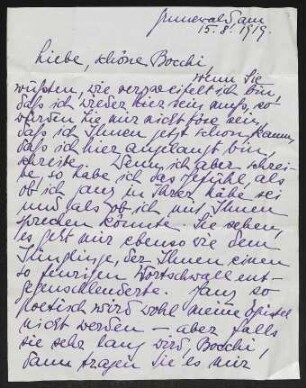 Grunewald am
15.8.1919.
Liebe, schöne Bocchi
wenn Sie
wüßten, wie verzweifelt ich bin,
daß ich wieder hier sein muß, so
würden Sie mir nicht böse sein,
daß ich Ihnen jetzt schon, kaum,
daß ich hier angelangt bin,
schreibe. Denn ich aber schrei-
be, so habe ich das Gefühl, als
ob ich ganz in Ihrer Nähe sei
und als ob ich mit Ihnen
sprechen könnte. Sie sehen,
es geht mir ebenso wie dem
Jünglinge, der Ihnen einen
so feurigen Wortschwall ent-
gegenschleuderte. Ganz so
poetisch wird wohl meine Epistel
nicht werden – aber falls
sie sehr lang wird, Bocchi,
dann tragen Sie es mir